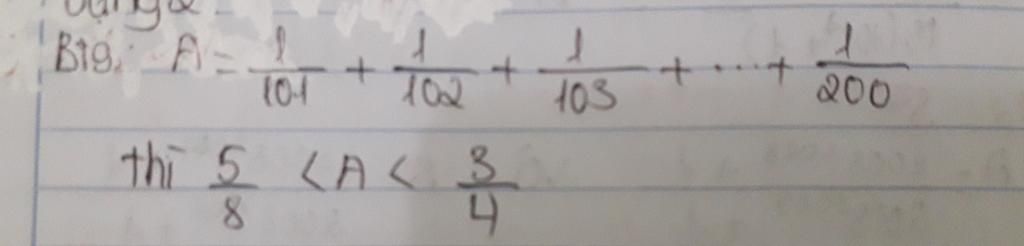 B19: A = 1/101 + 1/102 + 1/103 + ... + 1/200
thì 5/8 < A < 3/4